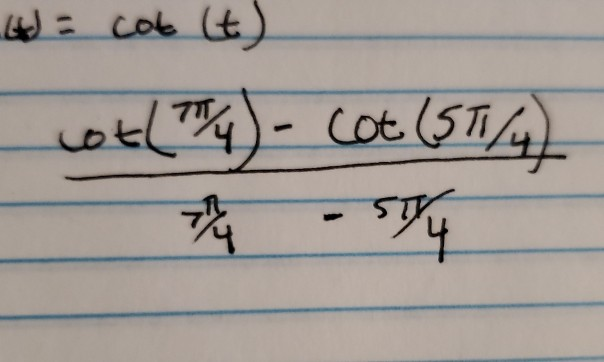 (t) = cot (t)
cot(7π/4) - cot(5π/4)
7π/4 - 5π/4